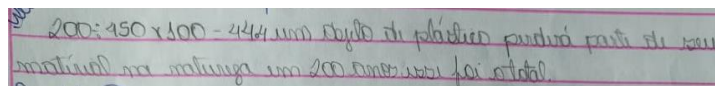 200÷450x100-444 um objeto de plástico perderá parte de seu
material na natureza em 200 anos foi o total.